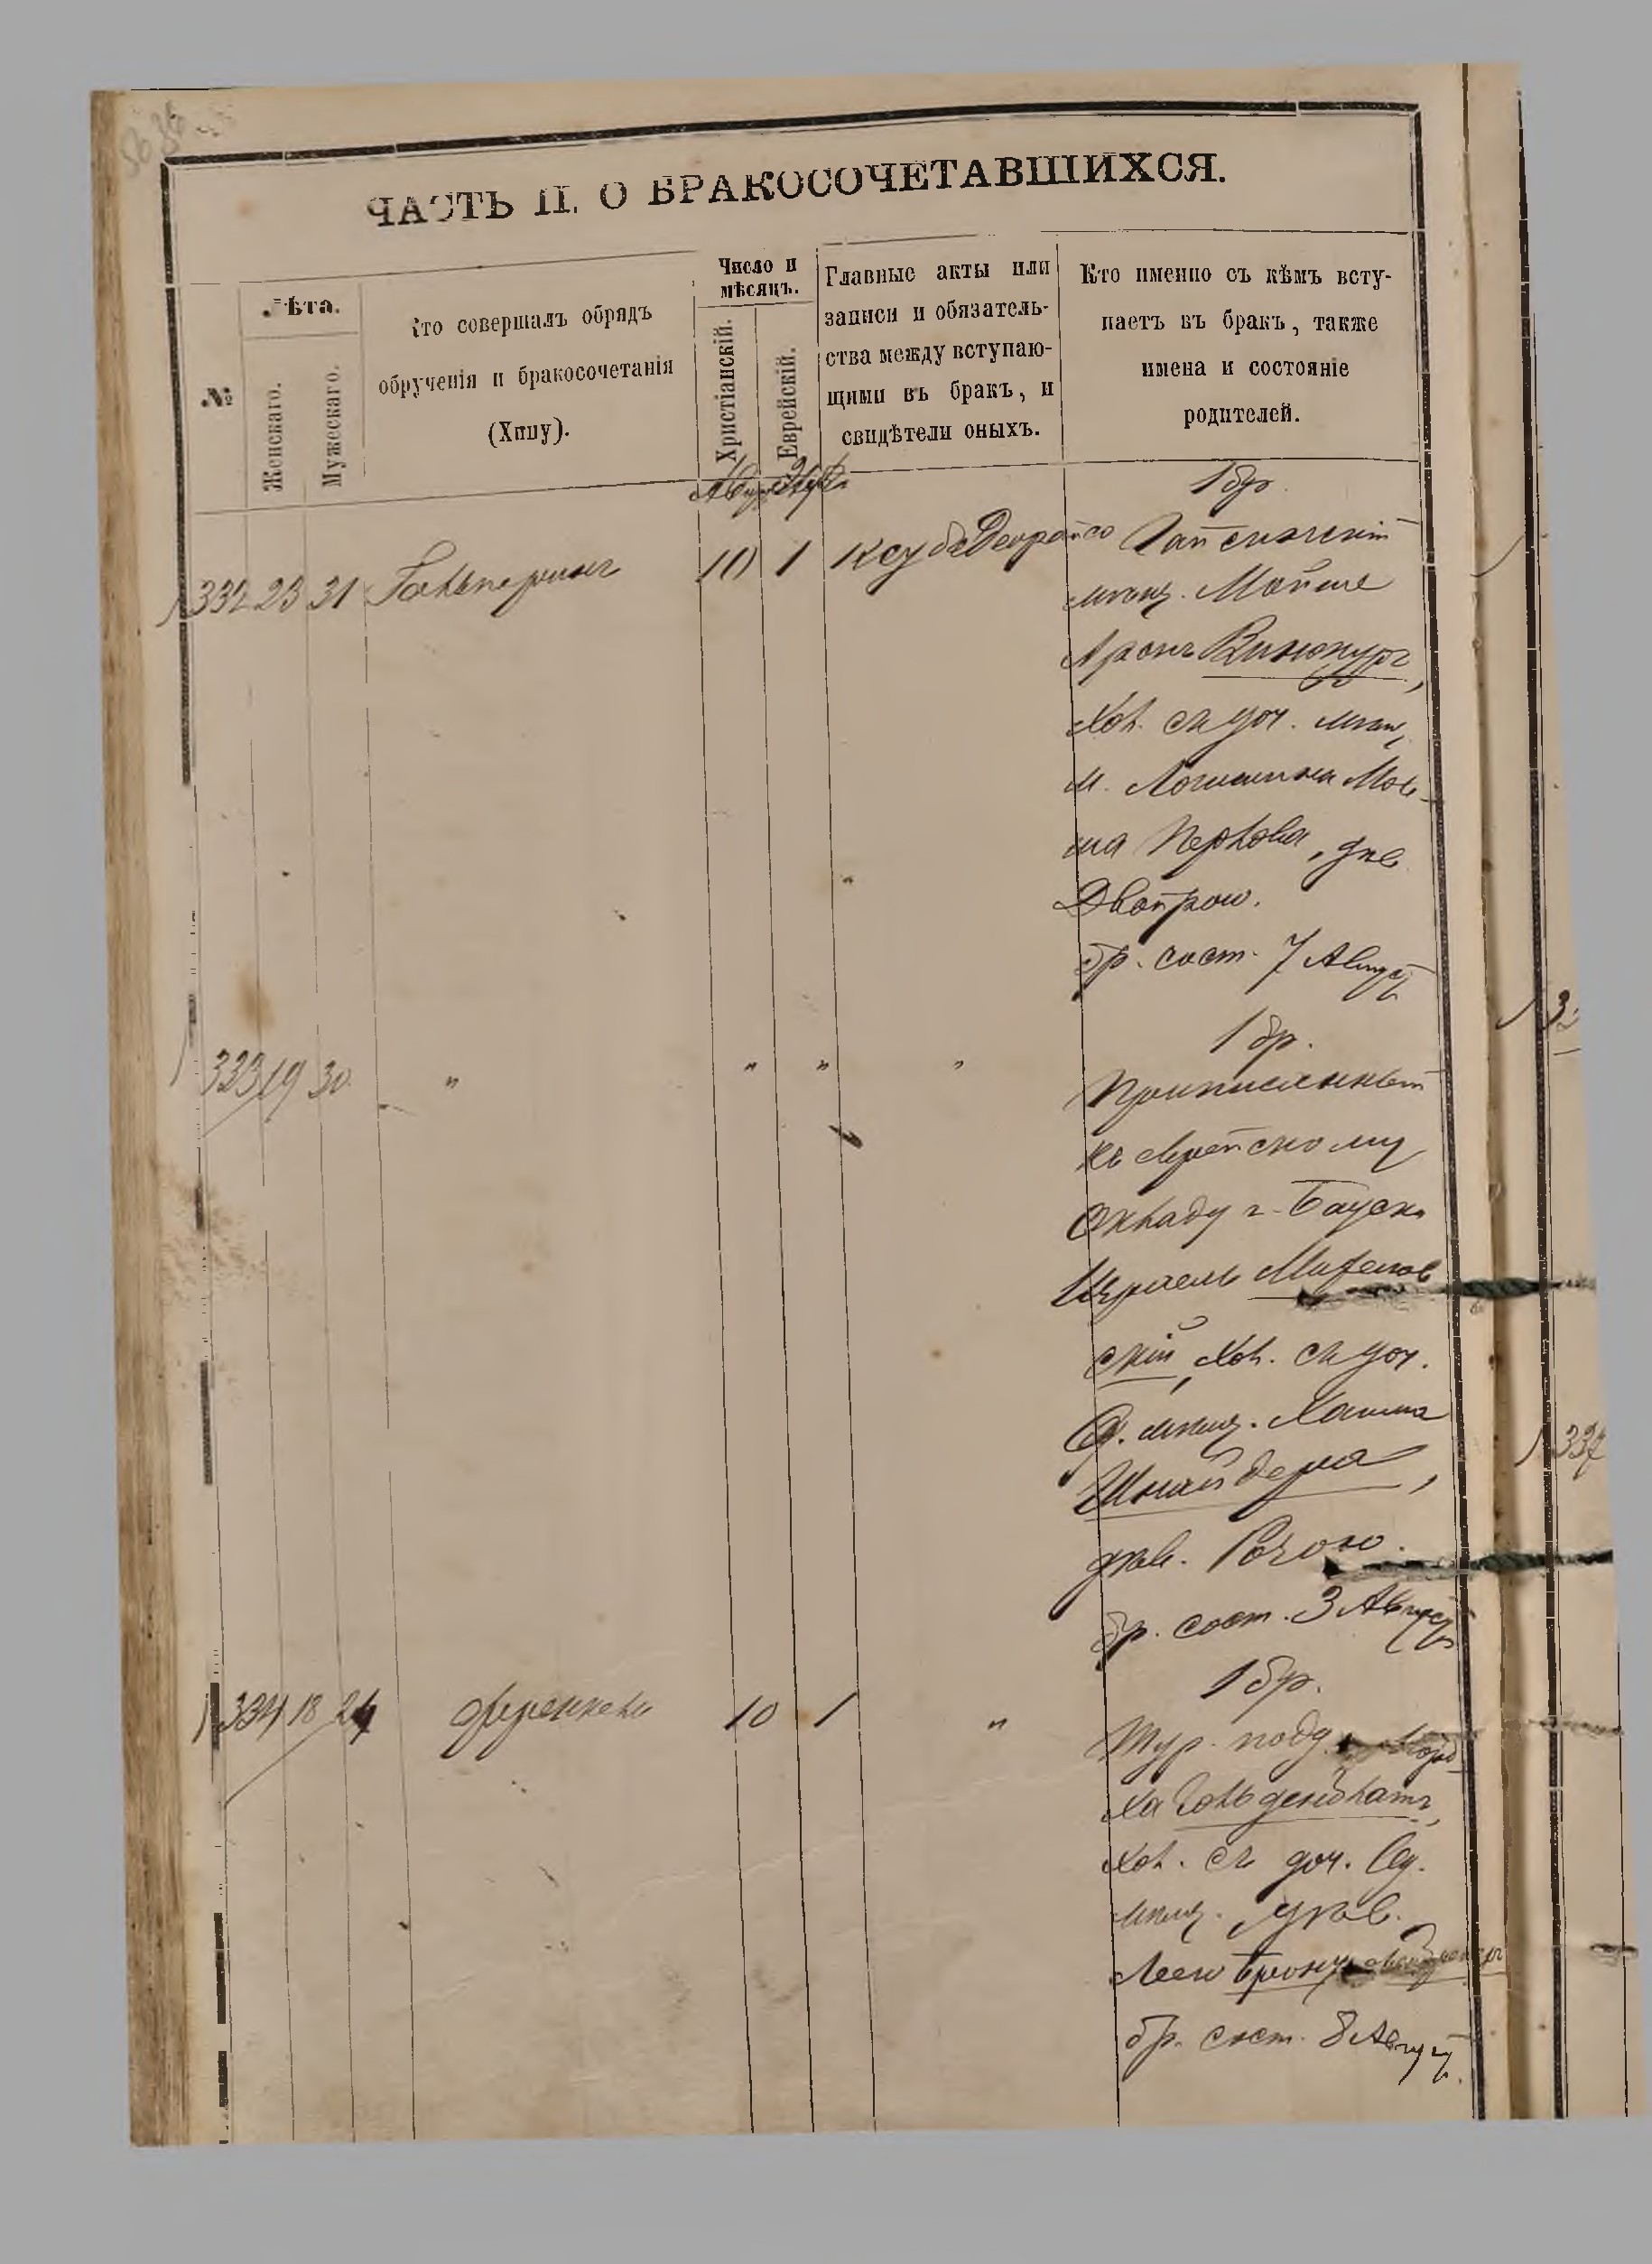 ЧАСТЬ II. О БРАКОСОЧЕТАВШИХСЯ.
№
Лѣта.
Женскаго.
Мужескаго.
Кто совершалъ обрядъ
обрученія и бракосочетанія
(Хипу).
Число и
мѣсяцъ.
Христіанскій.
Еврейскій.
Главные акты или
записи и обязатель-
ства между вступаю-
щими въ бракъ, и
свидѣтели оныхъ.
Кто именно съ кѣмъ всту-
паетъ въ бракъ, также
имена и состояніе
родителей.
332 23 31 Гальперинъ 10 1
1 бр.
мѣщ. Мойше
Аронъ Винокуръ,
хол. съ доч. мѣщ.
м. Логишина Мов-
ша Перлова, дѣв.
Двойрою.
бр. сост. 7 Август
333 19 30 " " " "
1 бр.
Приписанный
къ еврейскому
Окладу г. Бауска
Израель
скій, хол. съ доч.
О. мѣщ. Хаима
Шнайдера,
дѣв. Рохою.
бр. сост. 3 Август
334 18 24 10 1 "
1 бр.
Тур. подд. Морд-
ха Гольденблатъ,
хол. съ доч. Од.
мѣщ. дѣв.
Леею
бр. сост. 8 Август